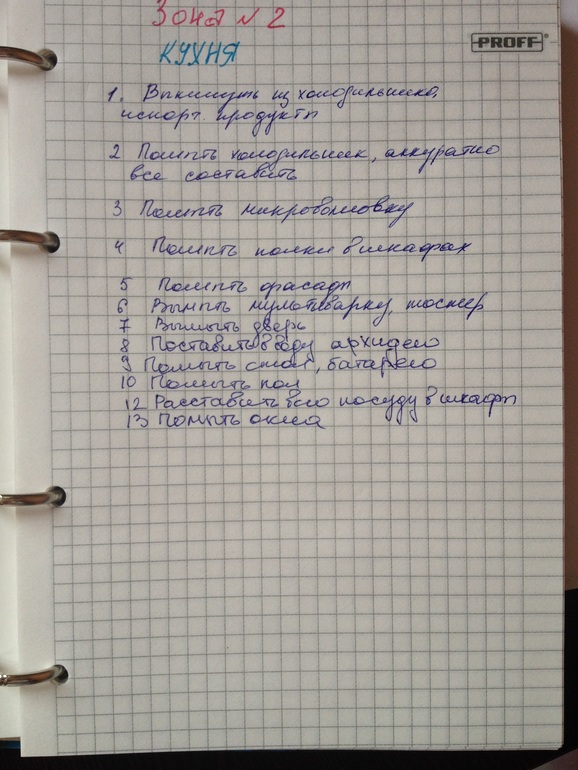 Зона № 2
КУХНЯ
PROFF
1. Выкинуть из холодильника
испорт. продукты
2 Помыть холодильник, аккуратно
все составить
3 Помыть микроволновку
4 Помыть полки в шкафах
5 Помыть фасады
6 Вымыть мультиварку, тостер
7 Вымыть дверь
8 Поставить в воду орхидею
9 Помыть стол, батарею
10 Помыть пол
12 Расставить всю посуду в шкафы
13 Помыть окна